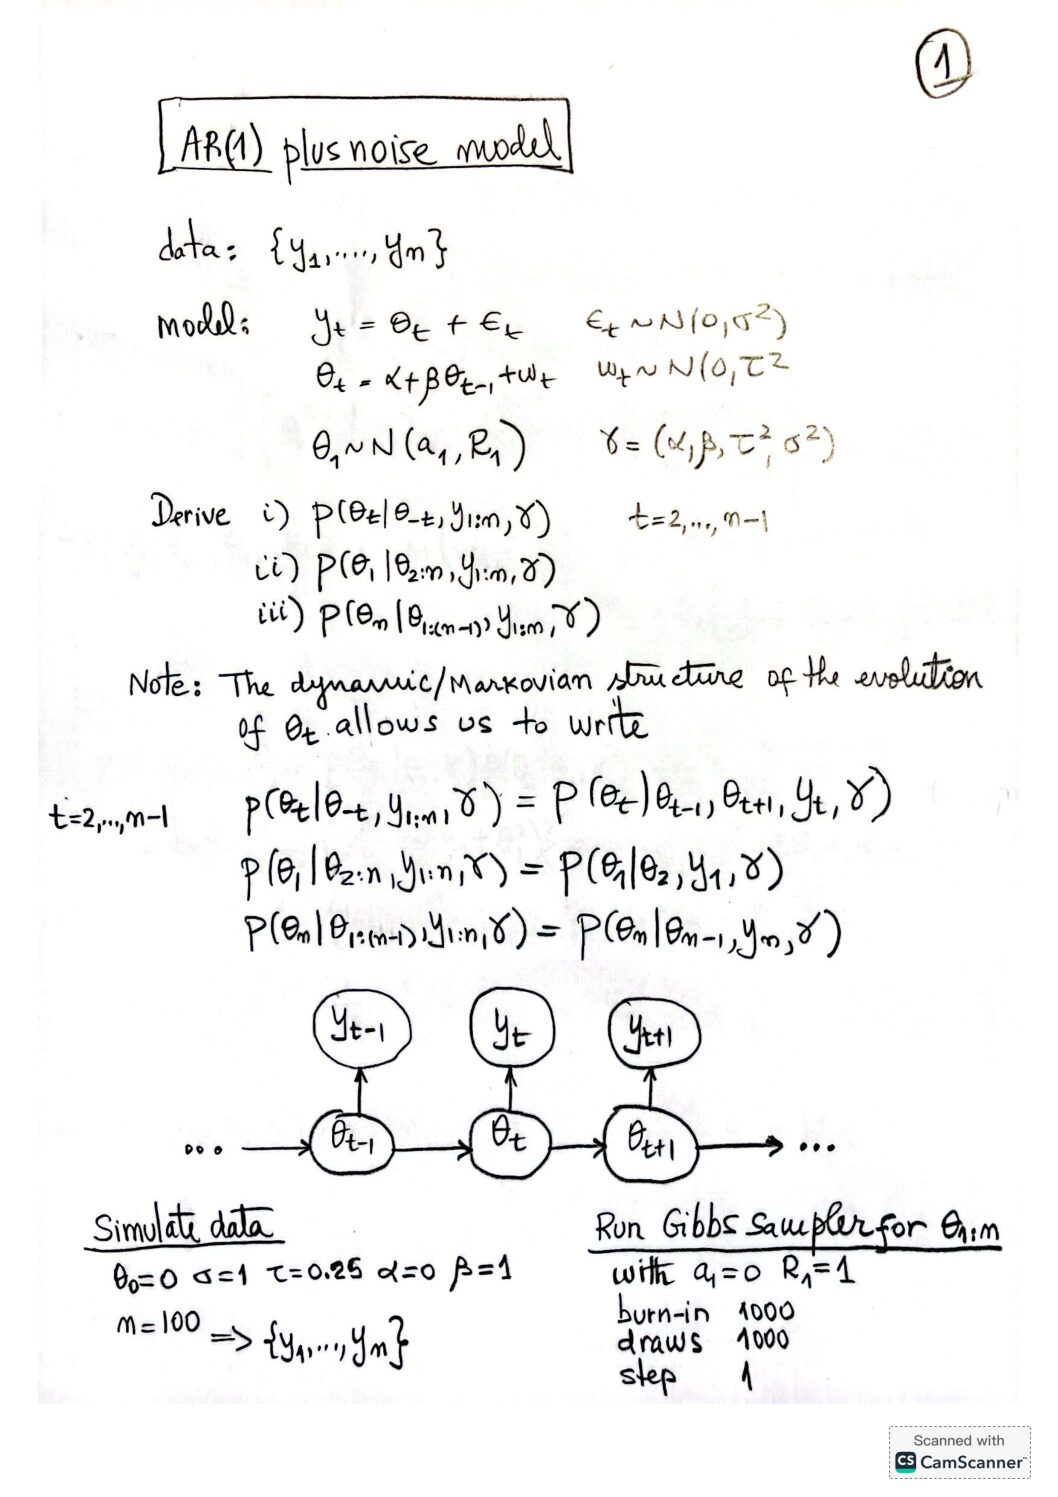 1
AR(1) plus noise model
data: {y₁,...., yₙ}
model: yₜ = θₜ + ϵₜ ϵₜ ~ N(0, σ²)
θₜ = α + βθₜ₋₁ + ωₜ ωₜ ~ N(0, τ²
θ₁ ~ N(a₁, R₁) γ = (α, β, τ², σ²)
Derive i) p(θₜ|θ₋ₜ, y₁:ₙ, γ) t=2,..., n-1
ii) p(θ₁|θ₂:ₙ, y₁:ₙ, γ)
iii) p(θₙ|θ₁:(ₙ₋₁), y₁:ₙ, γ)
Note: The dynamic/Markovian structure of the evolution
of θₜ allows us to write
t=2,..., n-1 p(θₜ|θ₋ₜ, y₁:ₙ, γ) = p(θₜ|θₜ₋₁, θₜ₊₁, yₜ, γ)
p(θ₁|θ₂:ₙ, y₁:ₙ, γ) = p(θ₁|θ₂, y₁, γ)
p(θₙ|θ₁:(ₙ₋₁), y₁:ₙ, γ) = p(θₙ|θₙ₋₁, yₙ, γ)
yₜ₋₁ yₜ yₜ₊₁
... θₜ₋₁ θₜ θₜ₊₁ ...
Simulate data
θ₀=0 σ=1 τ=0.25 α=0 β=1
n=100 => {y₁,..., yₙ}
Run Gibbs sampler for θ₁:ₙ
with a₁=0 R₁=1
burn-in 1000
draws 1000
step 1
Scanned with
CS CamScanner